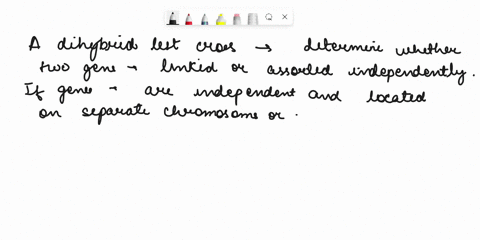 A dihybrid test cross → determine whether
two gene → linked or assorted independently.
If gene → are independent and located
on separate chromosome or .